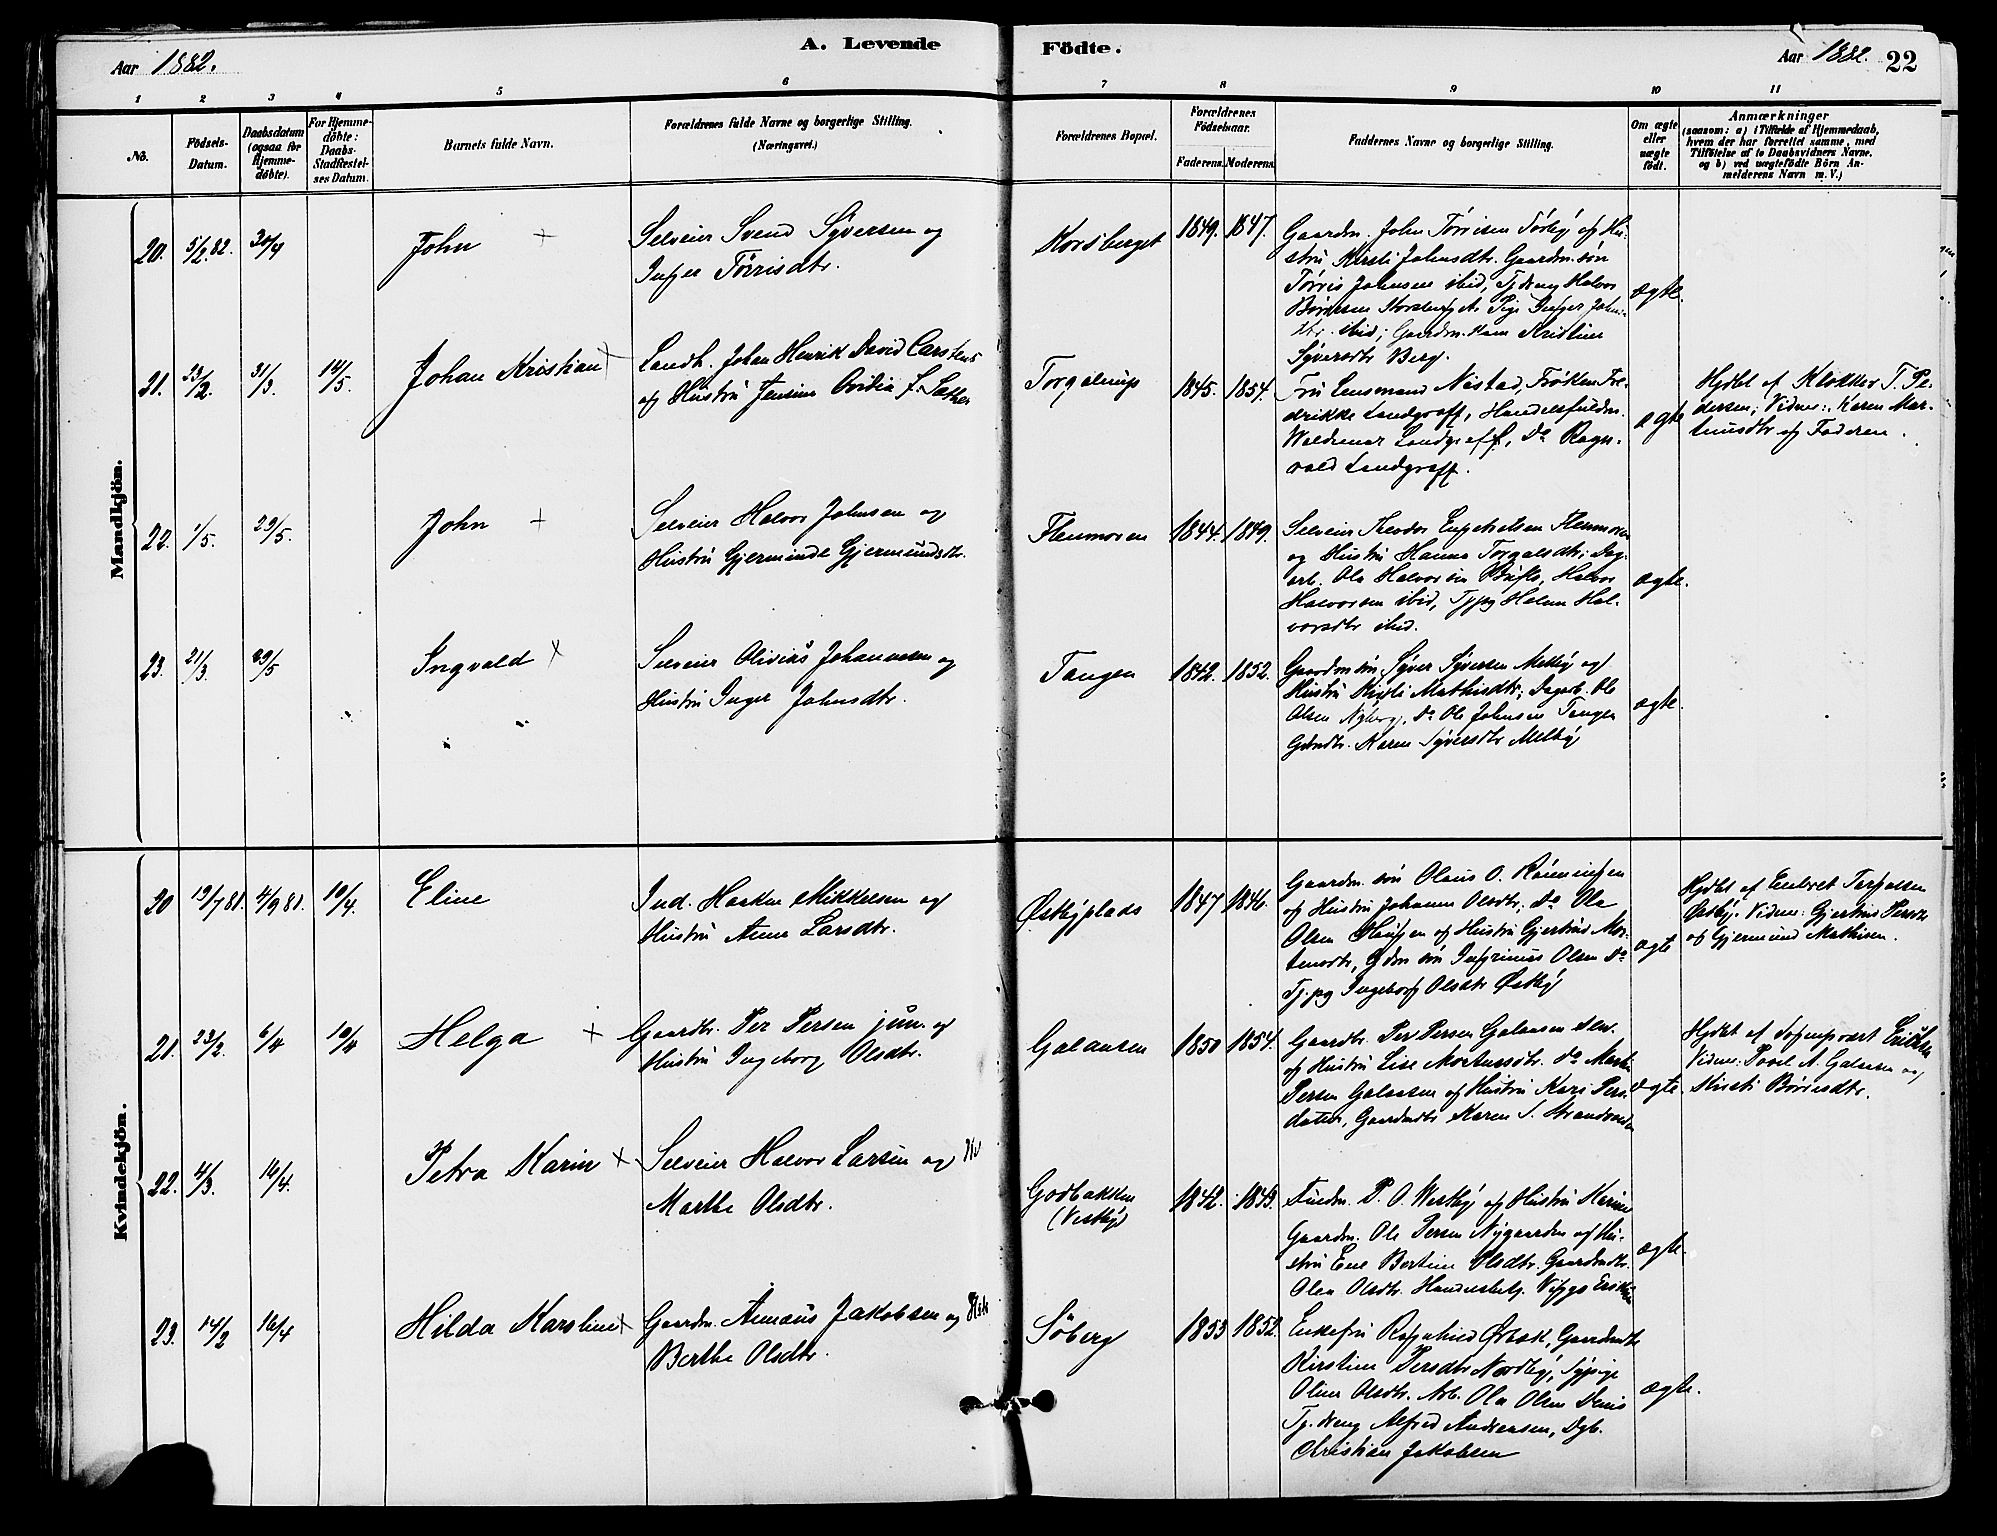 A. Levende Födte.
Aar 1882.
Aar 1882. 22
1 2 3 4 5 6 7 8 9 10 11
No.
Födsels-
Datum.
Daabsdatum
(ogsaa for
Hjemme-
döbte).
For Hjemme-
döbte:
Daabs-
Stadfæstel-
ses Datum.
Barnets fulde Navn.
Forældrenes fulde Navne og borgerlige Stilling.
(Næringsvei.)
Forældrenes Bopæl.
Forældrenes
Födselsaar.
Faderens. Moderens.
Faddernes Navne og borgerlige Stilling.
Om ægte
eller
uægte
födt.
Anmærkninger
(saasom: a) i Tilfælde af Hjemmedaab,
hvem der har forrettet samme, med
Tilföielse af to Daabsvidners Navne,
og b) ved uægtefödte Börn An-
melderens Navn m. V.)
Mandkjön.
20. 5/2 82. 30/4 John +
Selveier Svend Syversen og
Inger Törrisdtr.
Korsberget 1849. 1847.
Gaardm. John Törrisen Sörby og Hu-
stru Kirsti Johnsdtr. Gaardm. sön
Törris Johnsen ibid, Tjdreng Halvor
Börresen Korsberget. Pige Inger Johns-
dtr. ibid; Gaardm. Kone Kristine
Syversdtr Berg.
ægte.
21. 23/2 31/3. 14/5. Johan Kristian +
Landh. Johan Henrik David Carstens
og Hustru Jensine Ovidia f. Sæther
Torgalrup 1845. 1854.
Fru Lensmand Næstad, Fröken Fre-
drikke Landgraff, Handelsfuldm.
Waldemar Landgraff, Do Ragn-
vald Landgraff.
ægte
Hjdbt af Klokker T. Pe-
dersen; Vidner: Karen Mar-
tinusdtr og Faderen.
22. 1/5. 29/5. John +
Selveier Halvor Johnsen og
Hustru Gjerminde Gjermundsdtr.
Flenmoren 1844. 1849.
Selveier Theodor Engebretsen Flenmoren
og Hustru Hanna Torgalsdtr; Dag-
arb. Ole Halvorsen, Halvor
Halvorsen ibid, Tjpg Helene Hal-
vorsdtr ibid.
ægte.
23. 21/3. 29/5 Ingvald +
Selveier Olivius Johannesen og
Hustru Inger Johnsdtr.
Tangen 1842. 1852.
Gaardm. sön Syver Syversen Melby og
Hustru Kirsti Mathisdtr; Dagarb. Ole
Olsen Nyberg, Do Ole Johnsen Tangen
Gdmdtr. Karen Syversdtr Melby
ægte.
Kvindekjön.
20 19/7 81. 4/9 81. 10/4. Eline
Ind. Haaken Mikkelsen og
Hustru Anne Larsdtr.
Östbyplads 1847 1846.
Gaardm. sön Olaus O. Röineingen
og Hustru Johanne Olsdtr; Do Ole
Olsen Haugen og Hustru Gjertrud Mor-
tensdtr, Gdm sön Ingrinius Olsen Do
Tj.pg Ingeborg Olsdtr Östby
ægte
Hjdbt af Embret Torgalsen
Östby. Vidner: Gjertrud Persdtr
og Gjermund Mathisen.
21. 23/2. 6/4 10/4 Helga +
Gaardbr. Per Persen jun. og
Hustru Ingeborg Olsdtr.
Galaasen 1850 1854.
Gaardbr. Per Persen Galaasen sen.
og Hustru Lise Mortensdtr. Do Martin
Persen Galaasen og Hustru Kari Pers-
datter, Gaardmdtr Karen S. Strandvolden
ægte.
Hjdbt af Sognepræst Eriksen
Vidner: Povel A. Galaasen og
Kirsti Börresdtr.
22. 4/3. 14/4. Petra Karin +
Selveier Halvor Larsen og Hu
Marthe Olsdtr.
Godbakken
(Vestby) 1842. 1843.
P. O. Westby og Hustru Karine
Gaardm. Ole Persen Nygaarden og Hu-
stru Ene Bertine Olsdtr. Gaardmdtr.
Olea Olsdtr.
ægte.
23. 14/2 16/4 Hilda Karoline +
Gaardm. Annæus Jakobsen og Hstr
Berthe Olsdtr.
Söberg 1853 1852.
Enkefru Ragnhild Örbæk, Gaardmdtr
Kirstine Persdtr Nordby, Sypige
Oline Olsdtr. Arb. Ole Olsen
Tj.dreng Alfred Andreasen, Dgb.
Christian Jakobsen
ægte.